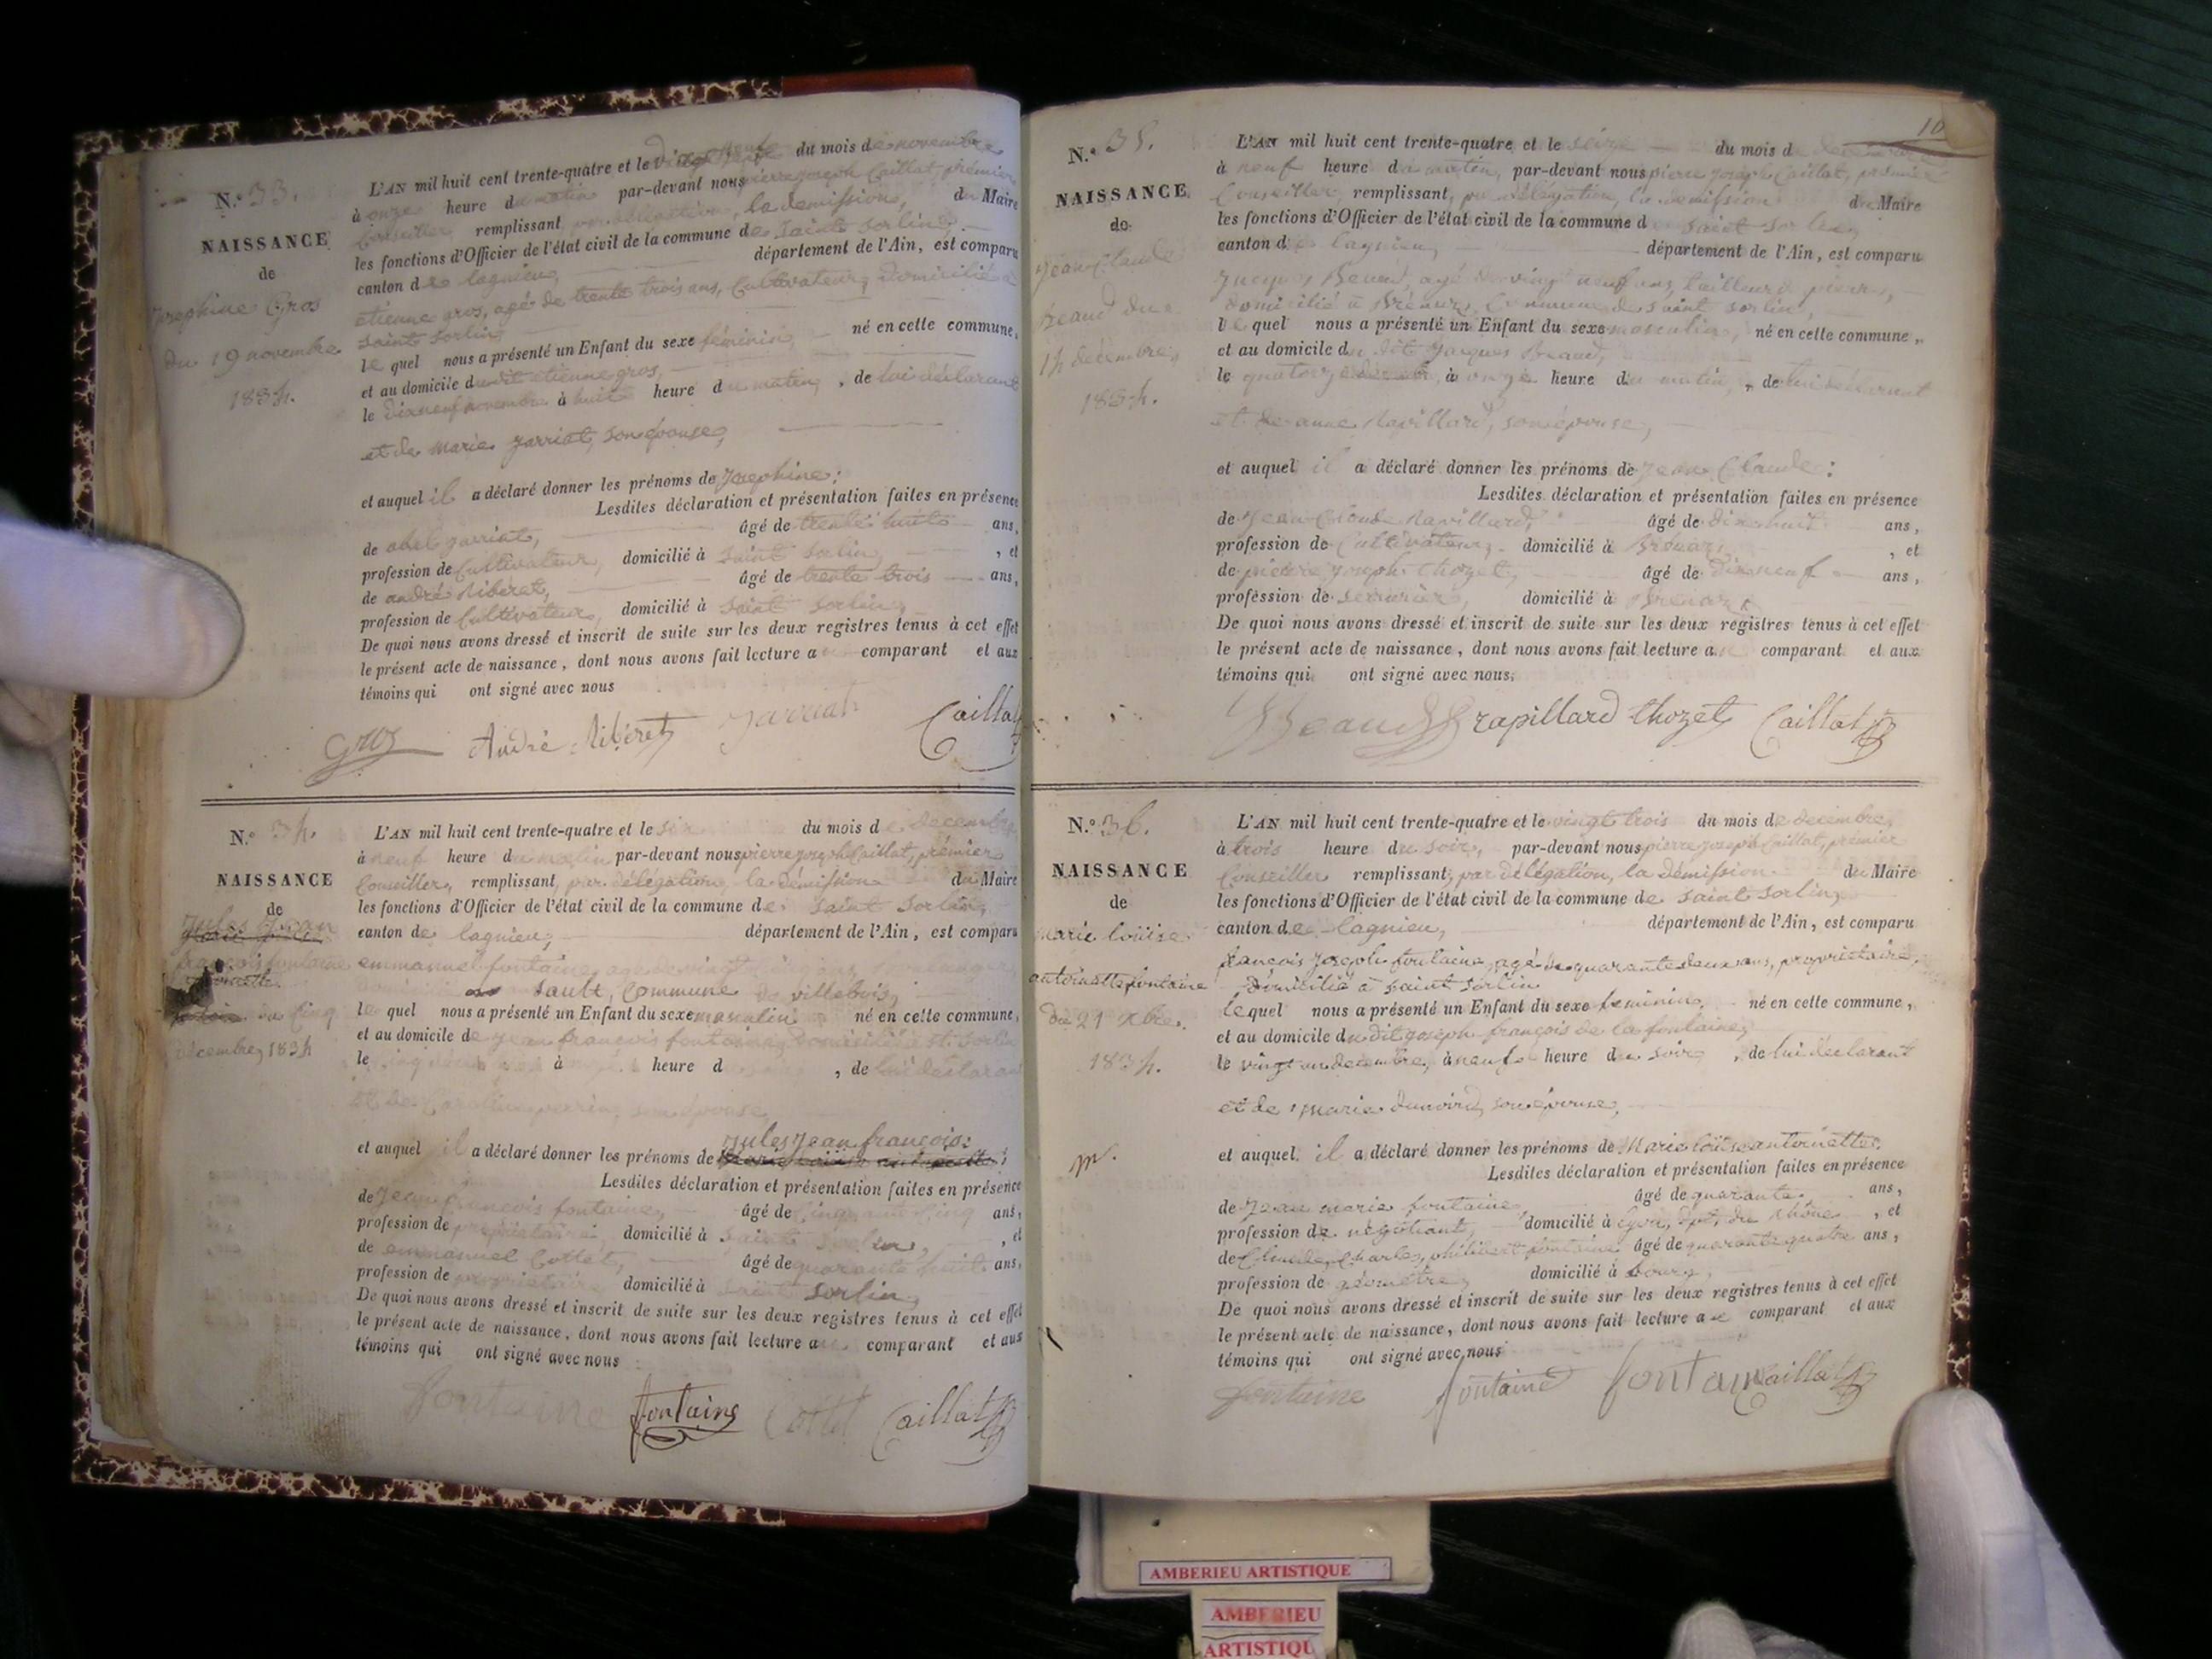 N.º 33.
NAISSANCE
de
Josephine Gros
du 19 novembre
1834.
L'AN mil huit cent trente-quatre et le neuf du mois de novembre
à onze heure du matin par-devant nous pierre joseph Caillat, prémier
Conseiller remplissant par délégation, la démission, du Maire
les fonctions d'Officier de l'état civil de la commune de saint sorlin,
canton de lagnieu, département de l'Ain, est comparu
etienne gros, agé de trente trois ans, Cultivateur, domicilié à
saint sorlin,
le quel nous a présenté un Enfant du sexe féminin, né en cette commune,
et au domicile dudit etienne gros,
le dix neuf novembre à huit heure du matin, de lui déclarant
et de marie jarriat, son épouse,
et auquel il a déclaré donner les prénoms de Josephine:
Lesdites déclaration et présentation faites en présence
de abel jarriat, âgé de trente huit ans,
profession de Cultivateur, domicilié à saint sorlin, , et
de andré Ribéret, âgé de trente trois ans,
profession de Cultivateur, domicilié à saint sorlin,
De quoi nous avons dressé et inscrit de suite sur les deux registres tenus à cet effet
le présent acte de naissance, dont nous avons fait lecture au comparant et aux
témoins qui ont signé avec nous
Gros André Ribéret Jarriat Caillat
N.º 34.
NAISSANCE
de
Jules Jean
françois fontaine
du cinq
décembre, 1834
L'AN mil huit cent trente-quatre et le six du mois de décembre
à neuf heure du matin par-devant nous pierre joseph Caillat, prémier
Conseiller, remplissant, par délégation, la démission du Maire
les fonctions d'Officier de l'état civil de la commune de saint sorlin,
canton de lagnieu, département de l'Ain, est comparu
emmanuel fontaine, agé de vingt ans,
sault, Commune de villebois,
le quel nous a présenté un Enfant du sexe masculin né en cette commune,
et au domicile de jean françois fontaine, domicilié à st. sorlin
le cinq à heure d , de lui déclarant
et de Caroline perrin, son épouse
et auquel il a déclaré donner les prénoms de Jules Jean françois:
Lesdites déclaration et présentation faites en présence
de Jean françois fontaine, âgé de Cinquante Cinq ans,
profession de propriétaire domicilié à saint sorlin, , et
de emmanuel Cottet, âgé de quarante huit ans,
profession de propriétaire domicilié à saint sorlin,
De quoi nous avons dressé et inscrit de suite sur les deux registres tenus à cet effet
le présent acte de naissance, dont nous avons fait lecture au comparant et aux
témoins qui ont signé avec nous
fontaine fontaine Cottet Caillat
10
N.º 35.
NAISSANCE
de
jean Claude
Beaud du
14 décembre,
1834.
L'AN mil huit cent trente-quatre et le seize du mois de décembre
à neuf heure du matin, par-devant nous pierre joseph Caillat, prémier
Conseiller remplissant, par délégation, la démission du Maire
les fonctions d'Officier de l'état civil de la commune de saint sorlin,
canton de lagnieu, département de l'Ain, est comparu
Jacques Beaud, agé de vingt neuf ans, tailleur de pierre,
domicilié à Commune de saint sorlin,
le quel nous a présenté un Enfant du sexe masculin, né en cette commune,
et au domicile du dit Jacques Beaud,
le quatorze à onze heure du matin, de lui déclarant
et de anne Rapillard, son épouse,
et auquel il a déclaré donner les prénoms de Jean Claude:
Lesdites déclaration et présentation faites en présence
de Jean Claude Rapillard, âgé de dix huit ans,
profession de Cultivateur, domicilié à , et
de pierre joseph thozet, âgé de dix neuf ans,
profession de serrurier, domicilié à
De quoi nous avons dressé et inscrit de suite sur les deux registres tenus à cet effet
le présent acte de naissance, dont nous avons fait lecture au comparant et aux
témoins qui ont signé avec nous.
Beaud rapillard thozet Caillat
N.º 36.
NAISSANCE
de
marie loüise
antoinette fontaine
du 21 xbre.
1834.
L'AN mil huit cent trente-quatre et le vingt trois du mois de décembre,
à trois heure du soir, par-devant nous pierre joseph Caillat, prémier
Conseiller remplissant, par délégation, la démission du Maire
les fonctions d'Officier de l'état civil de la commune de saint sorlin,
canton de lagnieu, département de l'Ain, est comparu
françois joseph fontaine, agé de quarante deux ans, propriétaire,
domicilié à saint sorlin
le quel nous a présenté un Enfant du sexe feminin, né en cette commune,
et au domicile du dit joseph françois de la fontaine,
le vingt un decembre, à neuf heure du soir, de lui déclarant
et de Marie dunoird, son épouse,
et auquel il a déclaré donner les prénoms de Marie loüise antoinette.
Lesdites déclaration et présentation faites en présence
de Jean marie fontaine âgé de quarante, ans,
profession de négotiant, domicilié à lyon, dpt. du Rhône , et
de Claude, Charles, philibert fontaine âgé de quarante quatre ans,
profession de géomètre, domicilié à bourg,
De quoi nous avons dressé et inscrit de suite sur les deux registres tenus à cet effet
le présent acte de naissance, dont nous avons fait lecture au comparant et aux
témoins qui ont signé avec nous
fontaine fontaine fontaine Caillat
AMBERIEU ARTISTIQUE
AMBERIEU
ARTISTIQU